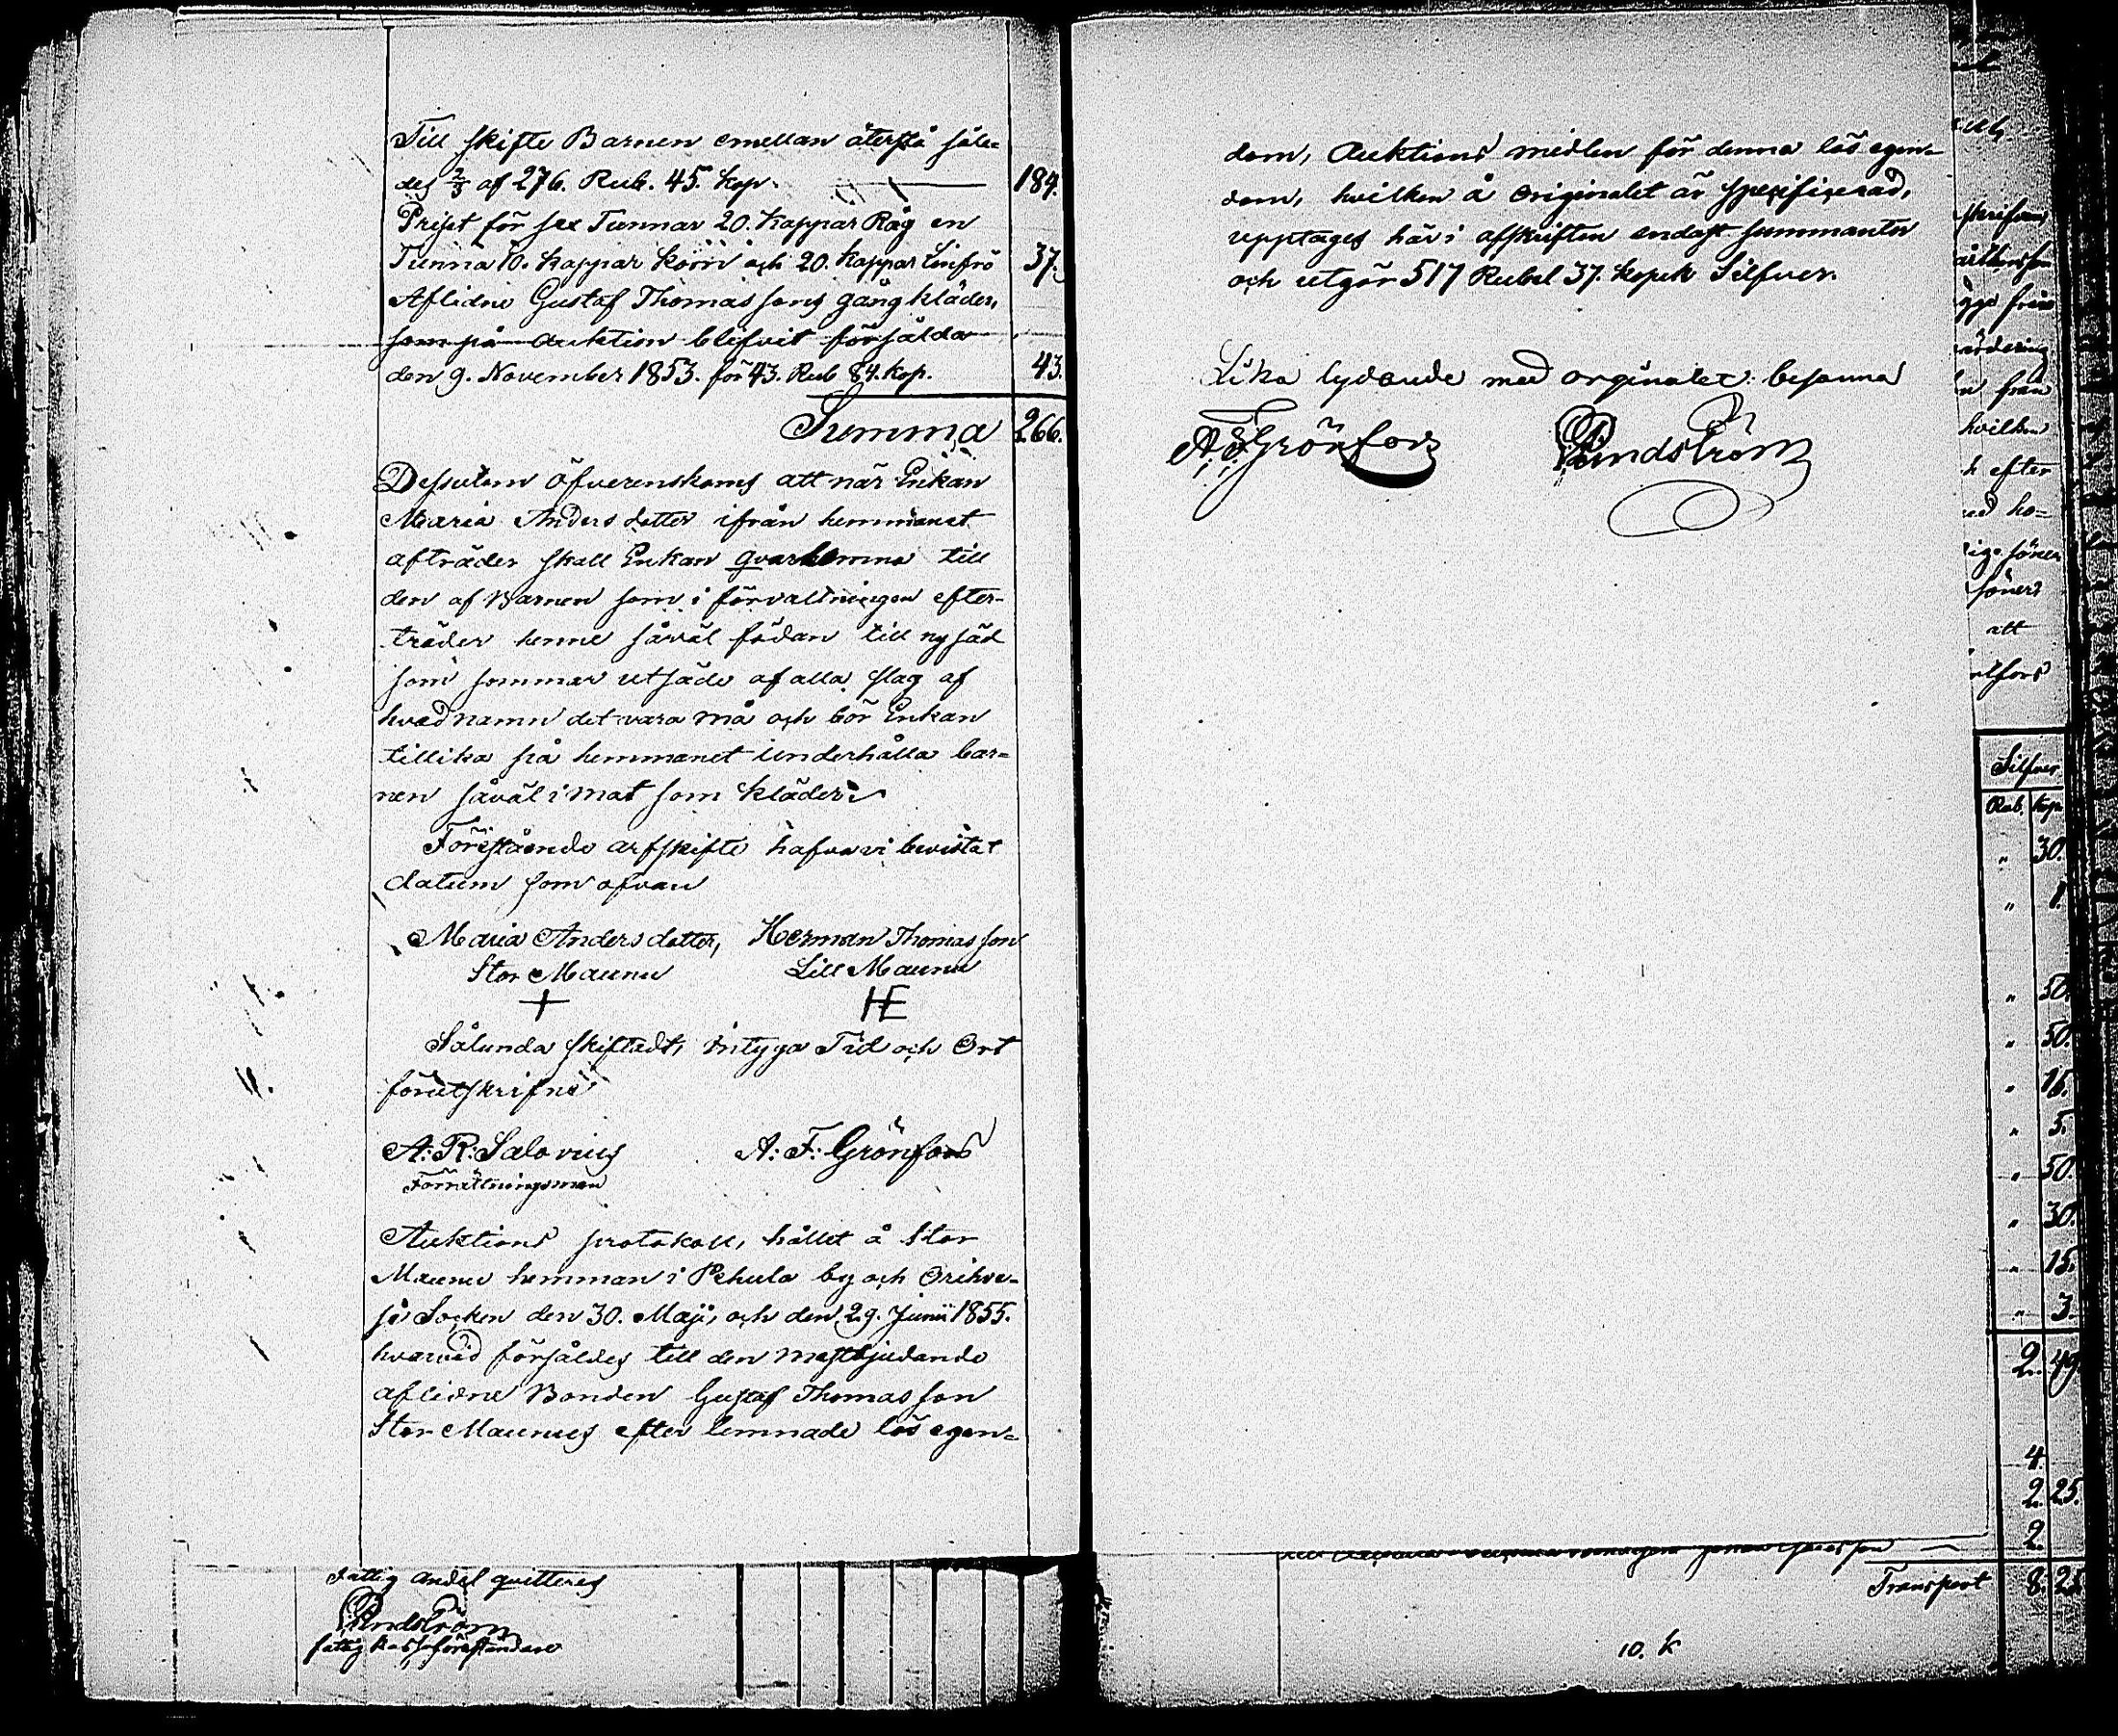 Till skifte Barnen emellan återstå såle=
des 2/3 af 276. Rub. 45. kop. 184.
Priset för sex Tunnor 20. kappar Råg en
Tunna 10. kappar korn och 20. kappar Linfrö 37.
Aflidne Gustaf Thomassons gångkläder,
som på auktion blifvit försålda
den 9. November 1853. för 43. Rub 84. kop. 43.
Summa 266.
Dessutom öfverenskoms att när Enkan
Maria Andersdotter ifrån hemmanet
afträder skall Enkan qvarlemna till
den af Barnen som i förvaltningen efter-
träder henne såväl födan till nysäd
som sommar utsäde af alla slag af
hvad namn det vara må och bör Enkan
tillika på hemmanet underhålla bar=
nen såväl i mat som kläder.
Förestående arfskifte hafva vi bevistat
datum som ofvan
Maria Andersdotter, Herman Thomasson
Stor Maunu Lill Maunu
+ HE
Sålunda skiftadt, intyga Tid och Ort
förutskrifne
A: R: Salovius A: F: Grönfors
Förrättningsman
Auktions protokoll, hållet å Stor
Maunu hemman i Pehula by och Orihve-
si Socken den 30. Maji, och den 29. Junii 1855.
hvarvid försåldes till den mestbjudande
aflidne Bonden Gustaf Thomasson
Stor Maunus efterlemnade lös egen=
Fattig andel quitteres
Lindström
fattig kassföreståndare
dom, Auktions medlen för denna lös egen=
dom, hvilken å originalet är specificerad,
upptages här i afskriften endast summanter
och utgör 517 Rubel 37. kopek Silfver.
Lika lydande med orginalet: besanna
A F Grönfors Lindström
ärdering
n från
hvilken
h efter
ed ho=
söner
att
Silfver
Rub. kop.
" 30.
" 1.
" 50.
" 50.
" 15.
" 5.
" 50.
" 30.
" 15.
" 3.
2. 49
4.
2. 25.
2.
Transport 8. 25
10. k